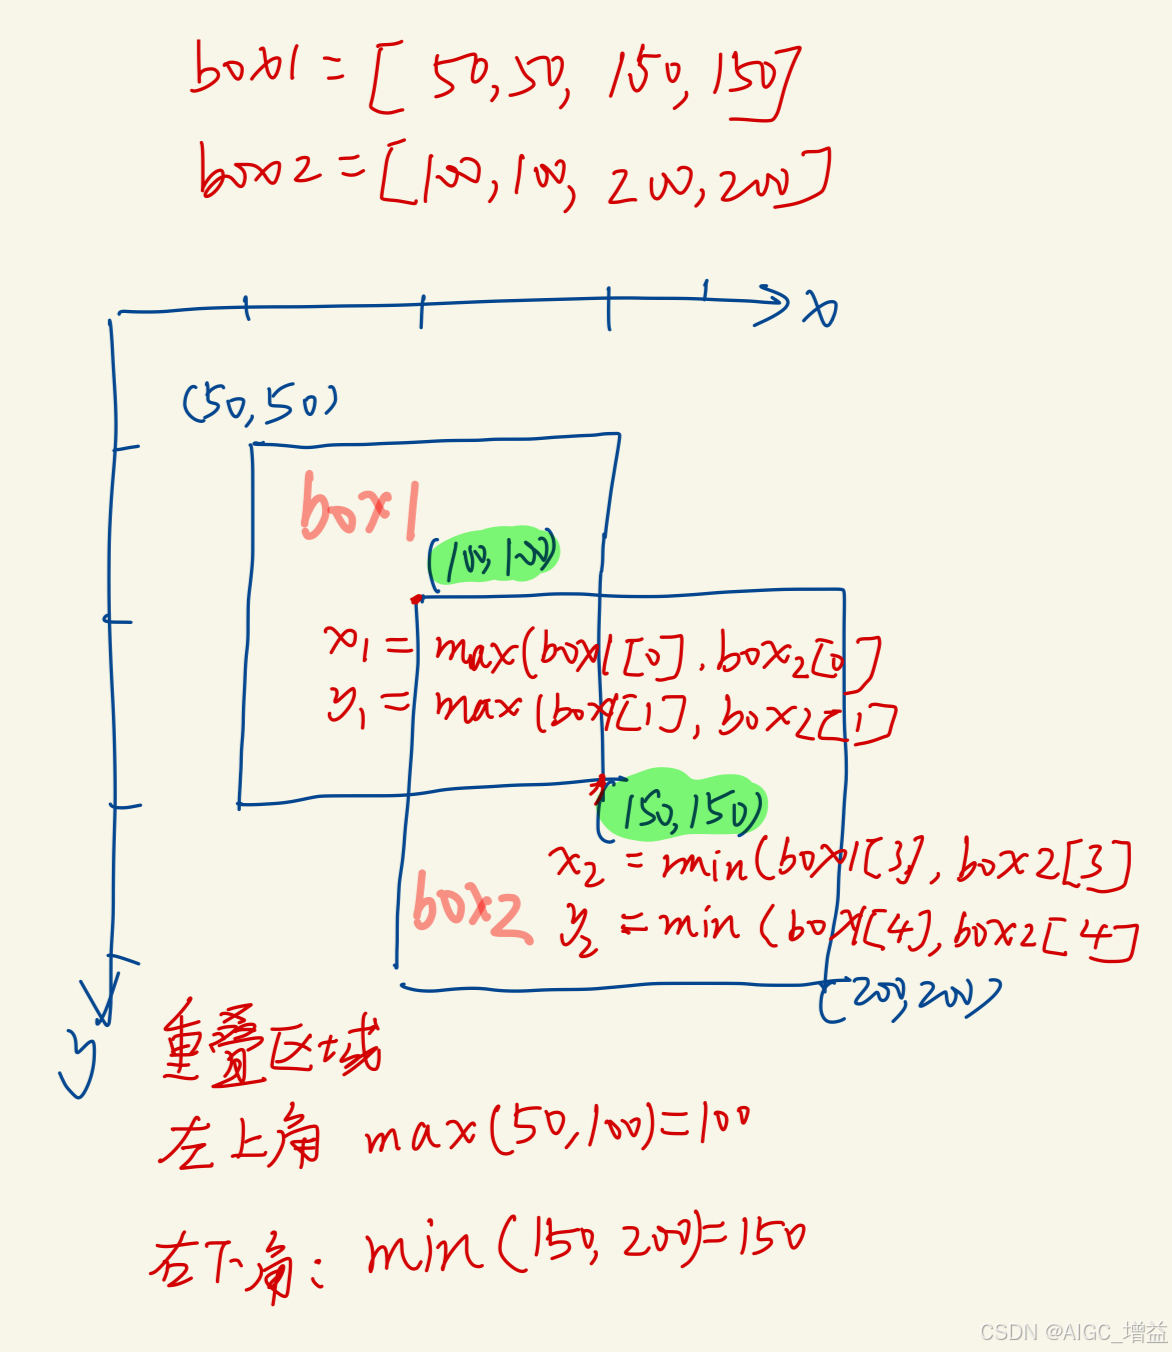 box1 = [50,50, 150,150]
box2 = [100,100, 200,200]
x
(50,50)
box1
(100,100)
x₁ = max(box1[0], box2[0]
y₁ = max(box1[1], box2[1]
(150,150)
x₂ = min(box1[3], box2[3]
box2
y₂ = min(box1[4], box2[4]
(200,200)
y
重叠区域
左上角 max(50,100)=100
右下角: min(150,200)=150
CSDN @AIGC_增益